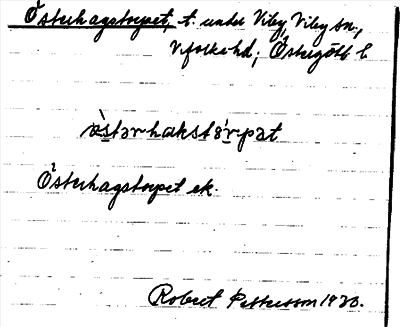 Österhagstorpet, t. under Viby, Viby sn,
Vifolka hd, Östergötl. l.
östərhakstɷrpət
Österhagstorpet ek.
Robert Pettersson 1920.